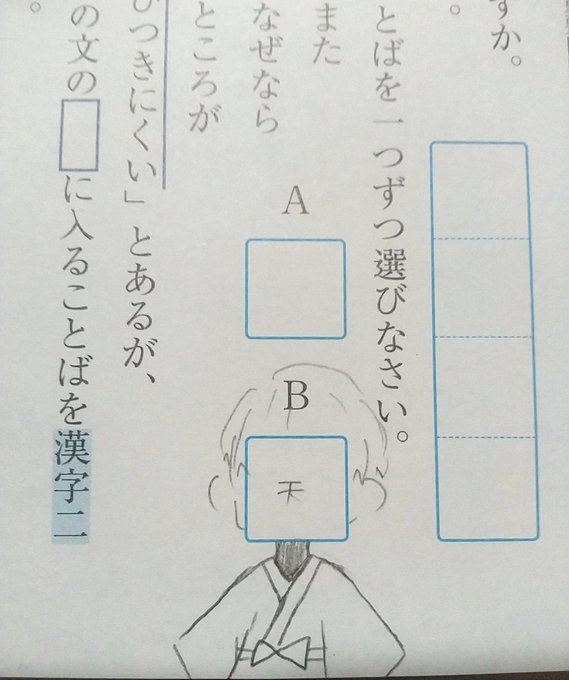 すか。
。
とばを一つずつ選びなさい。
また
なぜなら
ところが
A
B
天
びつきにくい」とあるが、
の文の
に入ることばを漢字二
。